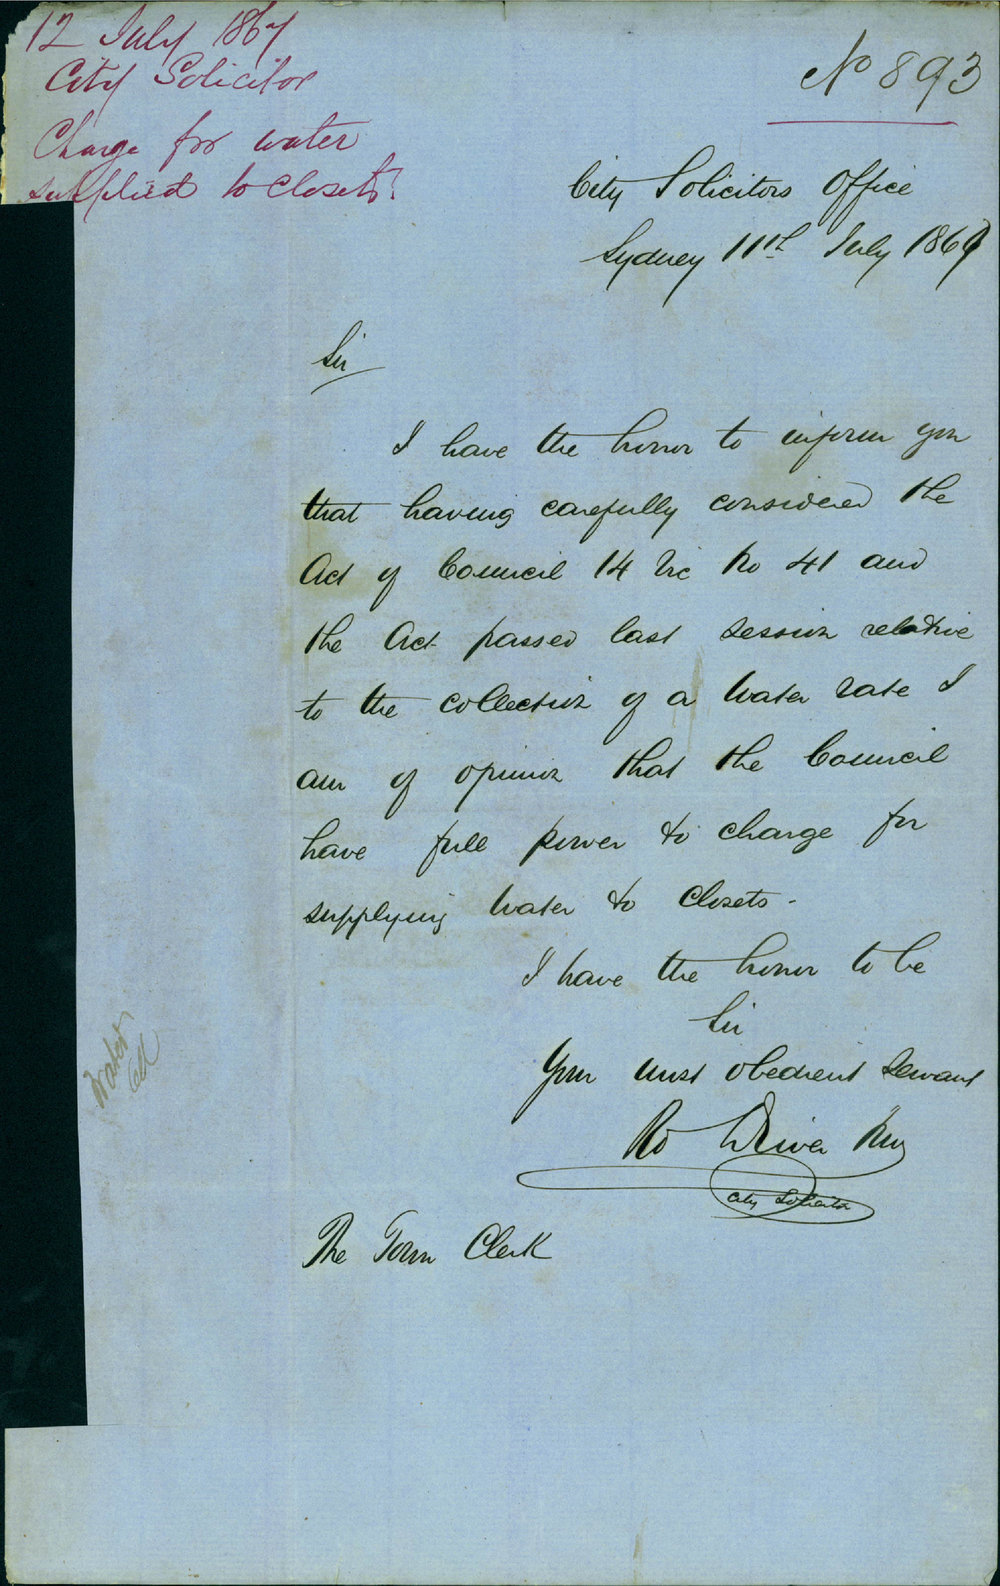 12 July 1867
City Solicitor
Charge for water
supplied to closets.
No 893
City Solicitors Office
Sydney 11th July 1867
Sir
I have the honor to inform you
that having carefully considered the
Act of Council 14 Vic No 41 and
the Act passed last session relative
to the collection of a Water rate I
am of opinion that the Council
have full power to charge for
supplying Water to Closets -
I have the honor to be
Sir
Your most obedient Servant
Rd Driver Jun
City Solicitor
The Town Clerk
Water